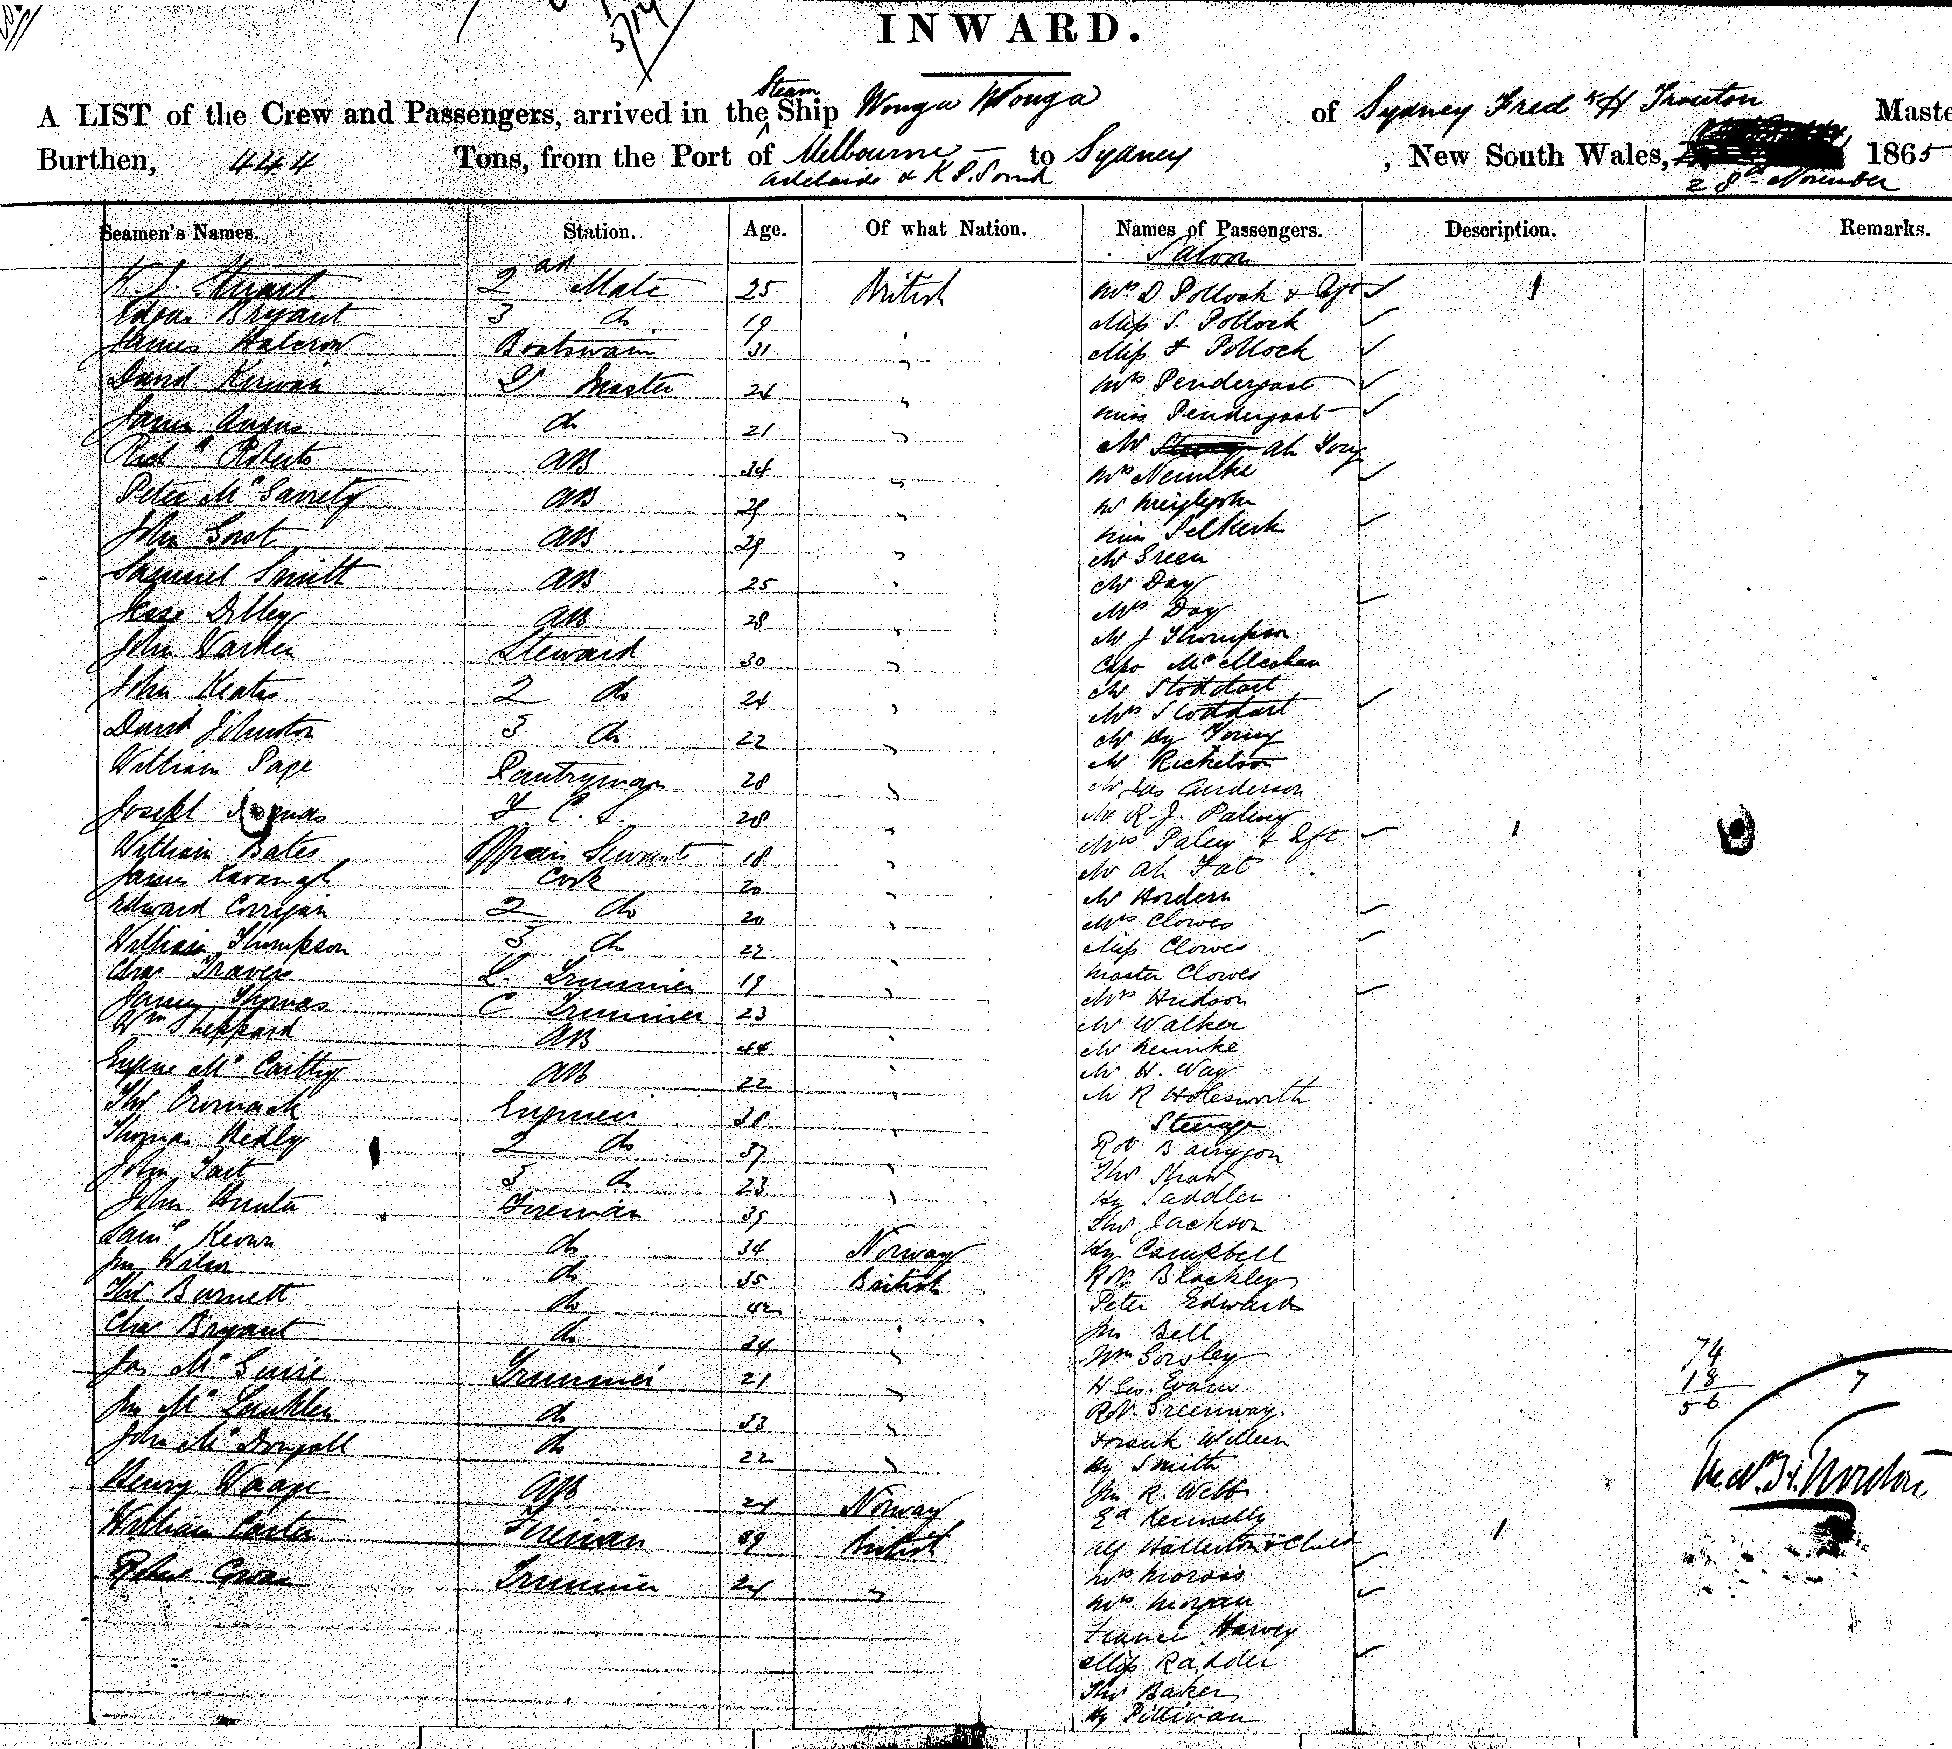 INWARD.
Steam
A LIST of the Crew and Passengers, arrived in the Ship Wonga Wonga of Sydney Fred k H Trouton Maste
Burthen, 444 Tons, from the Port of Melbourne to Sydney, New South Wales, 1865
Adelaide & K G Sound 28th November
Seamen's Names. Station. Age. Of what Nation. Names of Passengers. Description. Remarks.
Saloon
Stuart 2nd Mate 25 British Mrs D Pollock &
Edgar Bryant 3 do 19 " Miss S. Pollock
James Halcrow Boatswain 31 " Miss F Pollock
David Kerwain Q Master 24 " Mrs Pendergast
James Angus do 21 " Miss Pendergast
Richd Roberts AB 34 " Mr Ah Tong
Peter Mc Garrety AB 29 " Mrs Neimke
John AB 29 " Mr
Samuel Smith AB 25 " Miss Selkirk
Jesse Dilley AB 28 " Mr Green
John Warken Steward 30 " Mr Day
John Keates 2 do 24 " Mrs Day
David Johnston 3 do 22 " Mr J Thompson
William Page Pantryman 28 " Capt McMeekan
Joseph Thomas F. C. S. 28 " Mr Stoddart
William Bates Officers Servant 18 " Mrs Stoddart
James Kavanagh Cook 20 " Mr Hy Young
Edward Corrigan 2 do 20 " Mr Ricketson
William Thompson 3 do 22 " Mr Jas Anderson
Chas Travers L. Trimmer 19 " Mr R. J. Paling
James Thomas C Trimmer 23 " Mrs Paley &
Wm Sheppard AB 44 " Mr Ah Fat
Eugene Mc Carthy AB 22 " Mr Hordern
Thos Cromack Engineer 38 " Mrs Clowes
Thomas Hedley 2 do 37 " Miss Clowes
John Tait 3 do 23 " Master Clowes
John Hunter Fireman 35 " Mrs Hudson
Saml Keown do 34 Norway Mr Walker
Jno Wilson do 35 British Mr Neimke
Thos Burnett do 42 " Mr H. Way
Chas Bryant do 34 " Mr R Holesworth
Jas Mc Guire Trimmer 21 " Steerage
Jno Mc do 33 " Rot
John Mc Dougall do 22 " Thos Shaw
Henry Waage AB 24 Norway Hy Saddler
William Carter Fireman 39 British Thos Jackson
Trimmer 24 " Hy Campbell
Robt Blackley
Peter Edwards
Jno Bell
Wm Gorsley
H Geo. Evans
Robt Greenway
Frank Wilken
Hy Smith
Jno R. Webb
Ed Kennelly
Alf Hallerton & Child
Mrs
Mrs Morgan
Francis Harvey
Miss Radder
Thos Baker
Hy Pillivan
74
18
56
7
Fredk H. Trouton